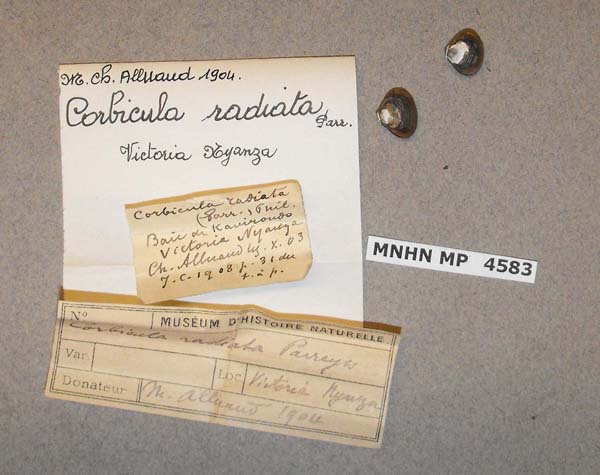 M. Ch. Alluaud 1904.
Corbicula radiata Parr.
Victoria Nyanza
Corbicula radiata
(Parr.) Phil.
Baie de Kavirondo
Victoria Nyanza
Ch. Alluaud X. 03
J. C. 1908 p. 31 du
t. à p.
MNHN MP 4583
N° MUSÉUM D'HISTOIRE NATURELLE
Corbicula radiata Parreyss
Var. Loc. Victoria Nyanza
Donateur M. Alluaud 1904